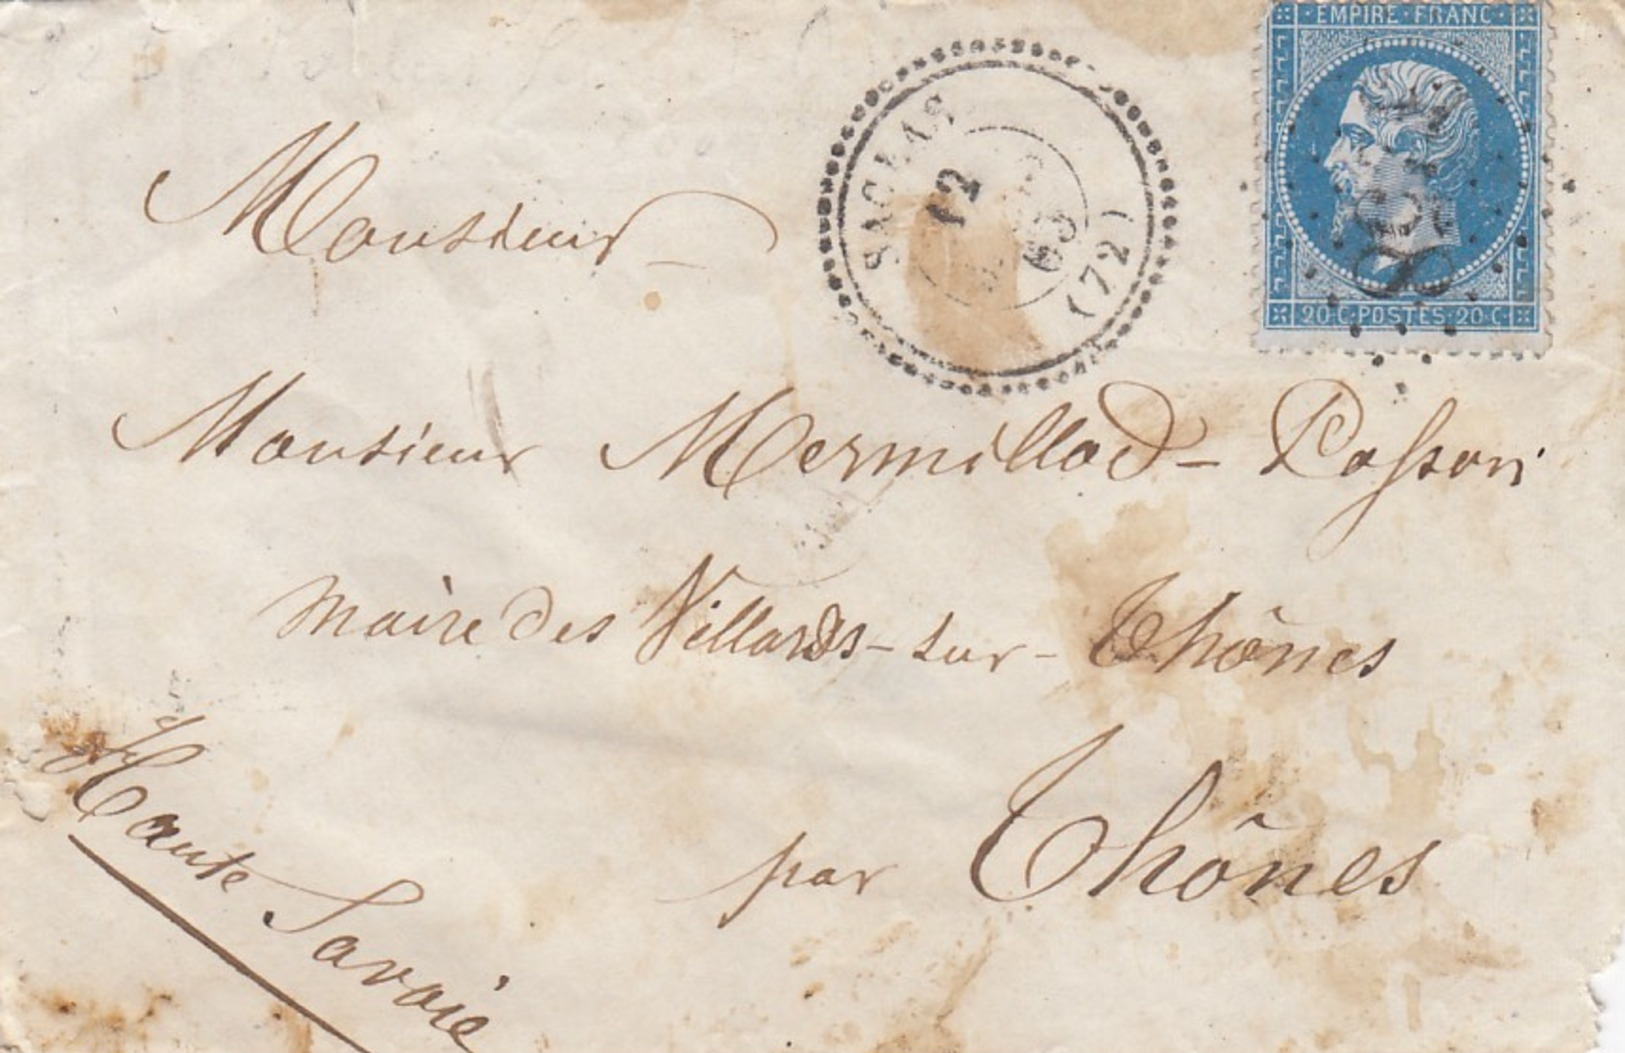 EMPIRE·FRANC·
SACLAS
12
63
(72)
20·C·POSTES·20·C
Monsieur
Monsieur Mermillod-Posson
maire des Villards-sur-Thônes
par Thônes
Haute Savoie